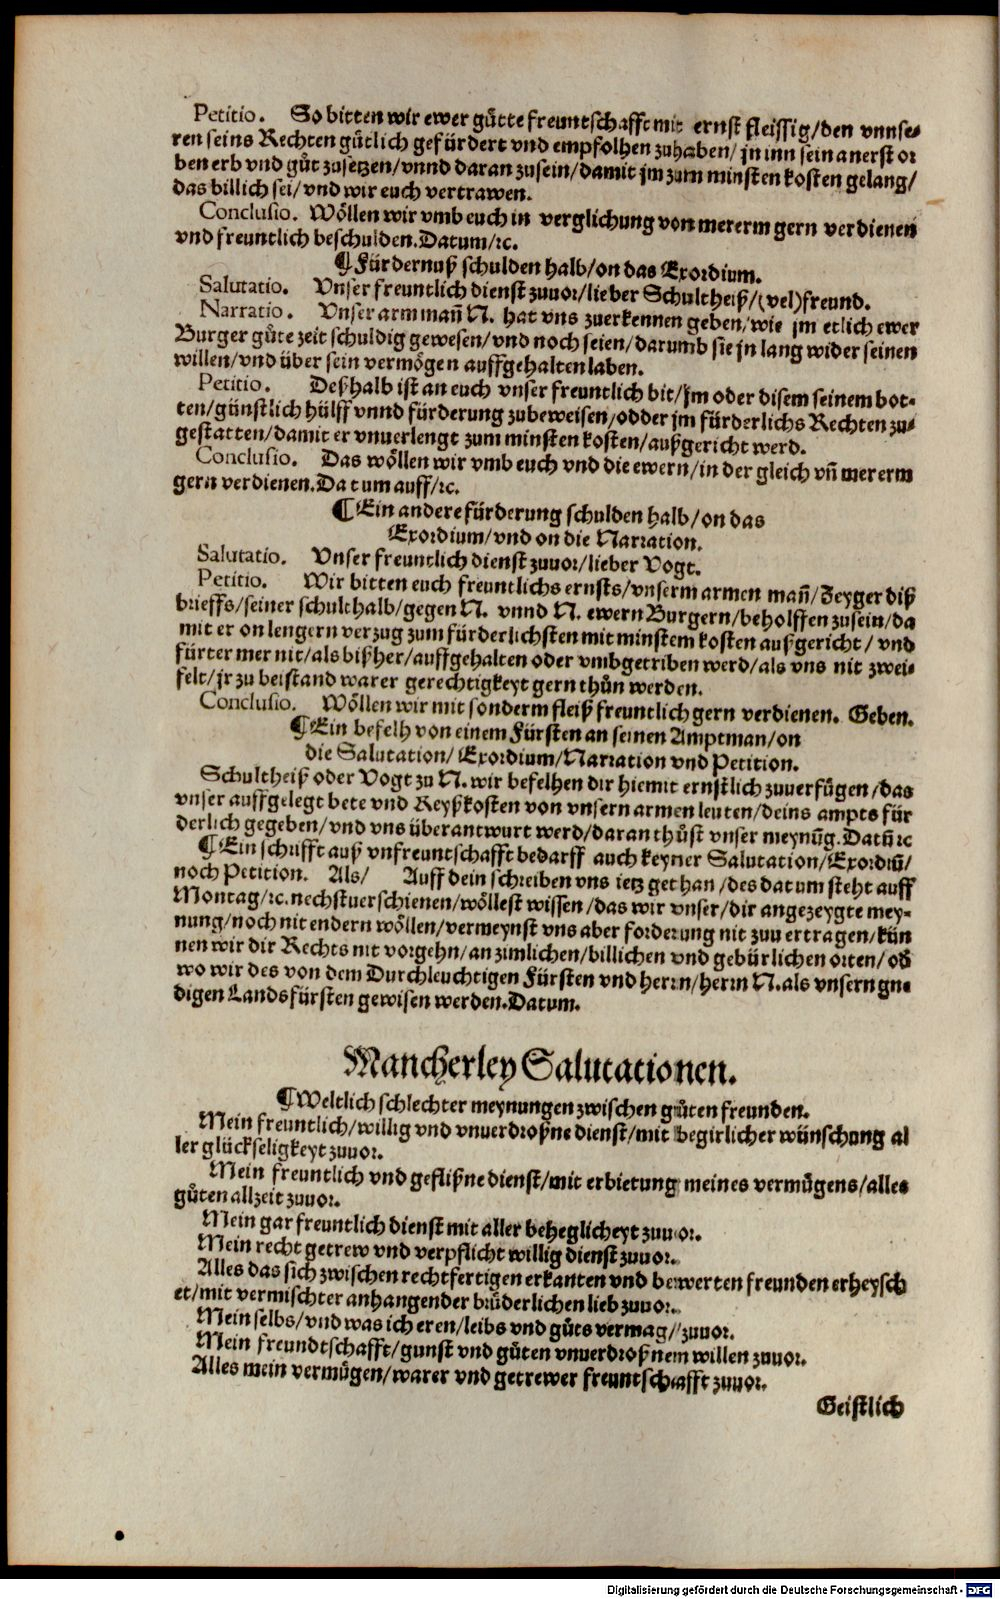 Petitio. So bitten wir ewer gůtte freuntschafft mit ernst fleissig/den vnnse-
ren seins Rechten gůtlich gefürdert vnd empfolhen zuhaben/ jn inn sein anerstor
ben erb vnd gůt zusetzen/vnnd daran zusein/damit jm zum minsten kosten gelang/
das billich sei/vnd wir euch vertrawen.
Conclusio. Wöllen wir vmb euch in verglichung von mererm gern verdienen
vnd freuntlich beschulden. Datum/ꝛc.
¶Fürdernuß schulden halb/on das Exordium.
Salutatio. Vnser freuntlich dienst zuuor/lieber Schultheiß/(vel)freund.
Narratio. Vnser arm mañ N. hat vns zuerkennen geben/wie jm etlich ewer
Burger gůte zeit schuldig gewesen/vnd noch seien/darumb sie jn lang wider seinen
willen/vnd über sein vermögen auffgehalten laben.
Petitio. Deßhalb ist an euch vnser freuntlich bit/jm oder disem seinem bot-
ten/günstlich hülff vnnd fürderung zubeweisen/odder jm fürderlichs Rechten zu-
gestatten/damit er vnuerlengt zum minsten kosten/außgericht werd.
Conclusio. Das wöllen wir vmb euch vnd die ewern/in der gleich vñ mererm
gern verdienen. Datum auff/ꝛc.
¶Ein andere fürderung schulden halb/on das
Exordium/vnd on die Narration.
Salutatio. Vnser freuntlich dienst zuuor/lieber Vogt.
Petitio. Wir bitten euch freuntlichs ernsts/vnserm armen mañ/Zeyger diß
brieffs/seiner schult halb/gegen N. vnnd N. ewern Burgern/beholffen zusein/da
mit er on lengern verzug zum fürderlichsten mit minstem kosten außgericht/ vnd
fürter mer nit/als bißher/auffgehalten oder vmbgetriben werd/als vns nit zwei-
felt/jr zu beistand warer gerechtigkeyt gern thůn werden.
Conclusio. Wöllen wir mit sonderm fleiß freuntlich gern verdienen. Geben.
¶Ein befelh von einem Fürsten an seinen Amptman/on
die Salutation/ Exordium/Narration vnd Petition.
Schultheiß oder Vogt zu N. wir befelhen dir hiemit ernstlich zuuerfügen/das
vnser auffgelegt bete vnd Reyßkosten von vnsern armen leuten/deins ampts für
derlich gegeben/vnd vns überantwurt werd/daran thůst vnser meynũg. Datũ ꝛc
¶Ein schrifft auß vnfreuntschafft bedarff auch keyner Salutation/Exordiũ/
noch Petition. Als/ Auff dein schreiben vns ietz gethan/des datum steht auff
Montag/ꝛc. nechstuerschienen/wöllest wissen/das wir vnser/dir angezeygte mey-
nung/noch nit endern wöllen/vermeynst vns aber forderung nit zuuertragen/kün
nen wir dir Rechts nit vorgehn/an zimlichen/billichen vnd gebürlichen orten/ob
wo wir des von dem Durchleuchtigen Fürsten vnd herrn/herrn N. als vnsern gne
digen Landsfürsten gewisen werden. Datum.
Mancherley Salutationen.
¶Weltlich schlechter meynungen zwischen gůten freunden.
Mein freuntlich/willig vnd vnuerdroßne dienst/mit begirlicher wünschung al
ler glückseligkeyt zuuor.
Mein freuntlich vnd geflißne dienst/mit erbietung meines vermügens/alles
gůten allzeit zuuor.
Mein gar freuntlich dienst mit aller beheglicheyt zuuor.
Mein recht getrew vnd verpflicht willig dienst zuuor.
Alles das sich zwischen rechtfertigen erkanten vnd bewerten freunden erheysch
et/mit vermischter anhangender brüderlichen lieb zuuor.
Mein selbs/vnd was ich eren/leibs vnd gůts vermag/zuuor.
Mein freundtschafft/gunst vnd gůten vnuerdroßnem willen zuuor.
Alles mein vermügen/warer vnd getrewer freuntschafft zuuor.
Geistlich
Digitalisierung gefördert durch die Deutsche Forschungsgemeinschaft - DFG